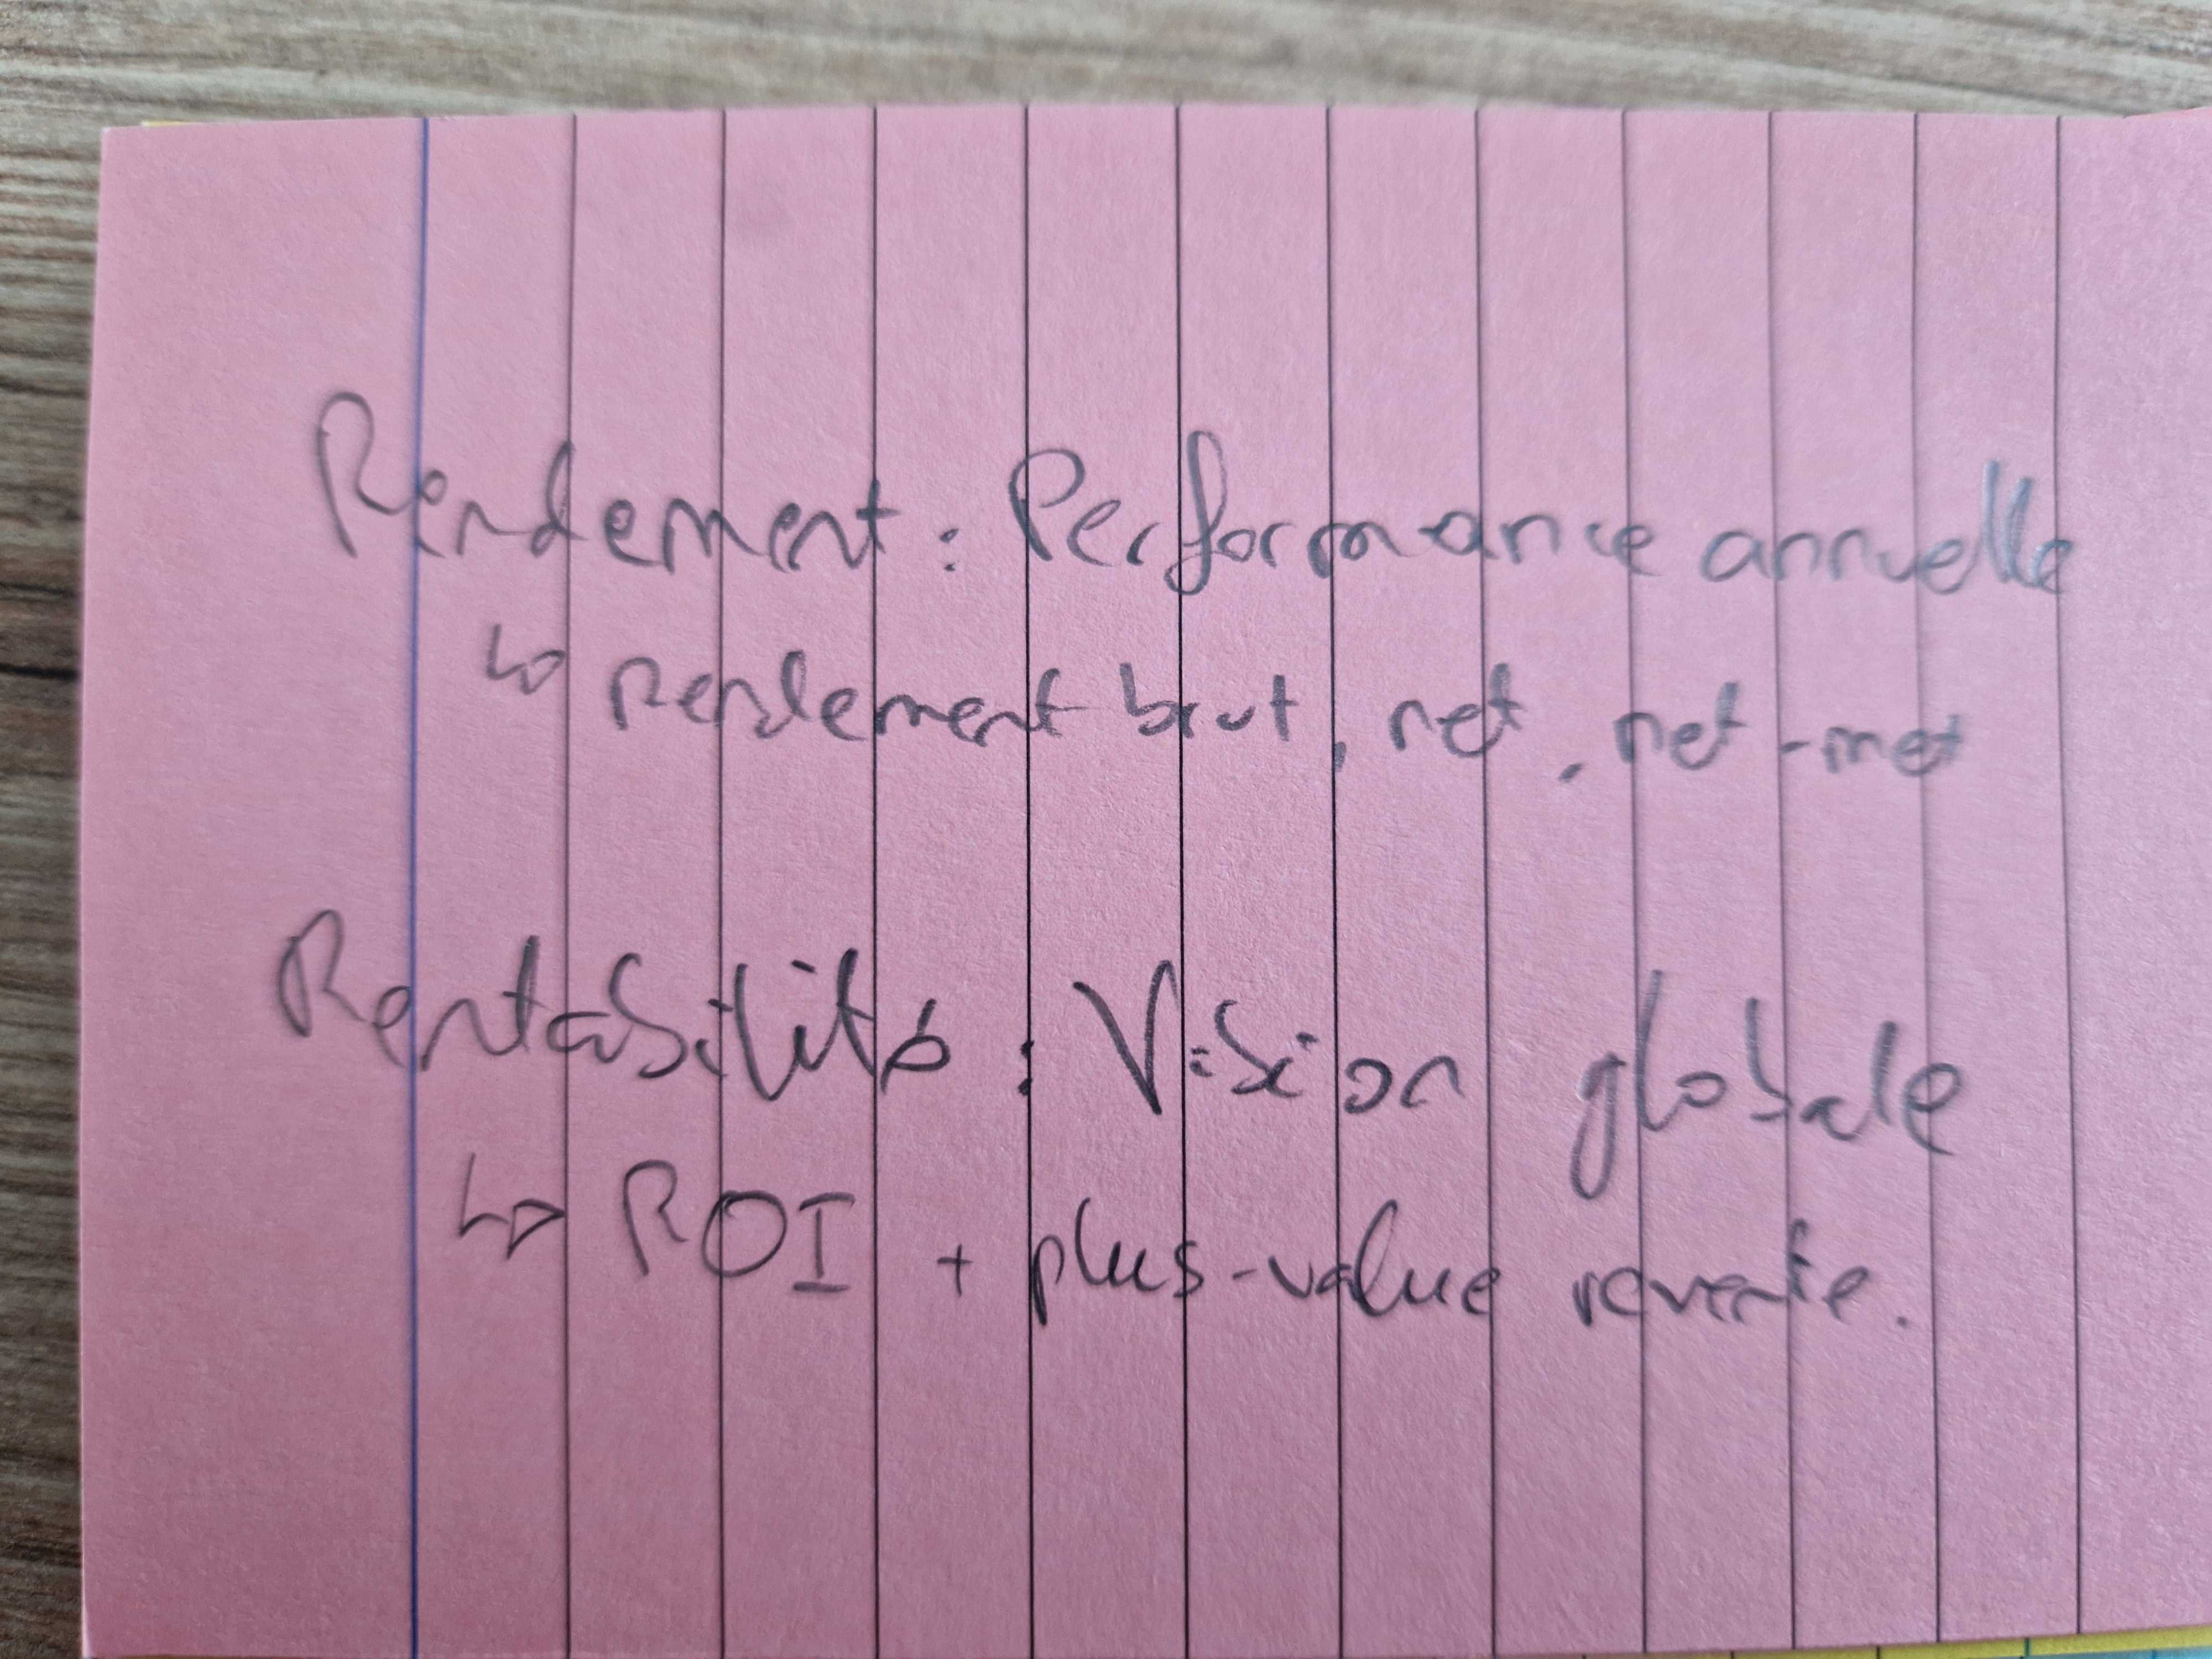 Rendement : Performance annuelle
↳ rendement brut, net, net-net
Rentabilité : Vision globale
↳ ROI + plus-value revente.